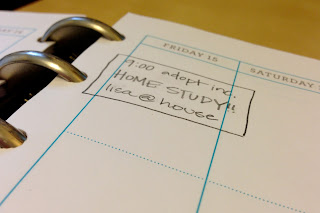 FRIDAY 15
SATURDAY
9:00 adopt inc.
HOME STUDY!!
lisa @ house